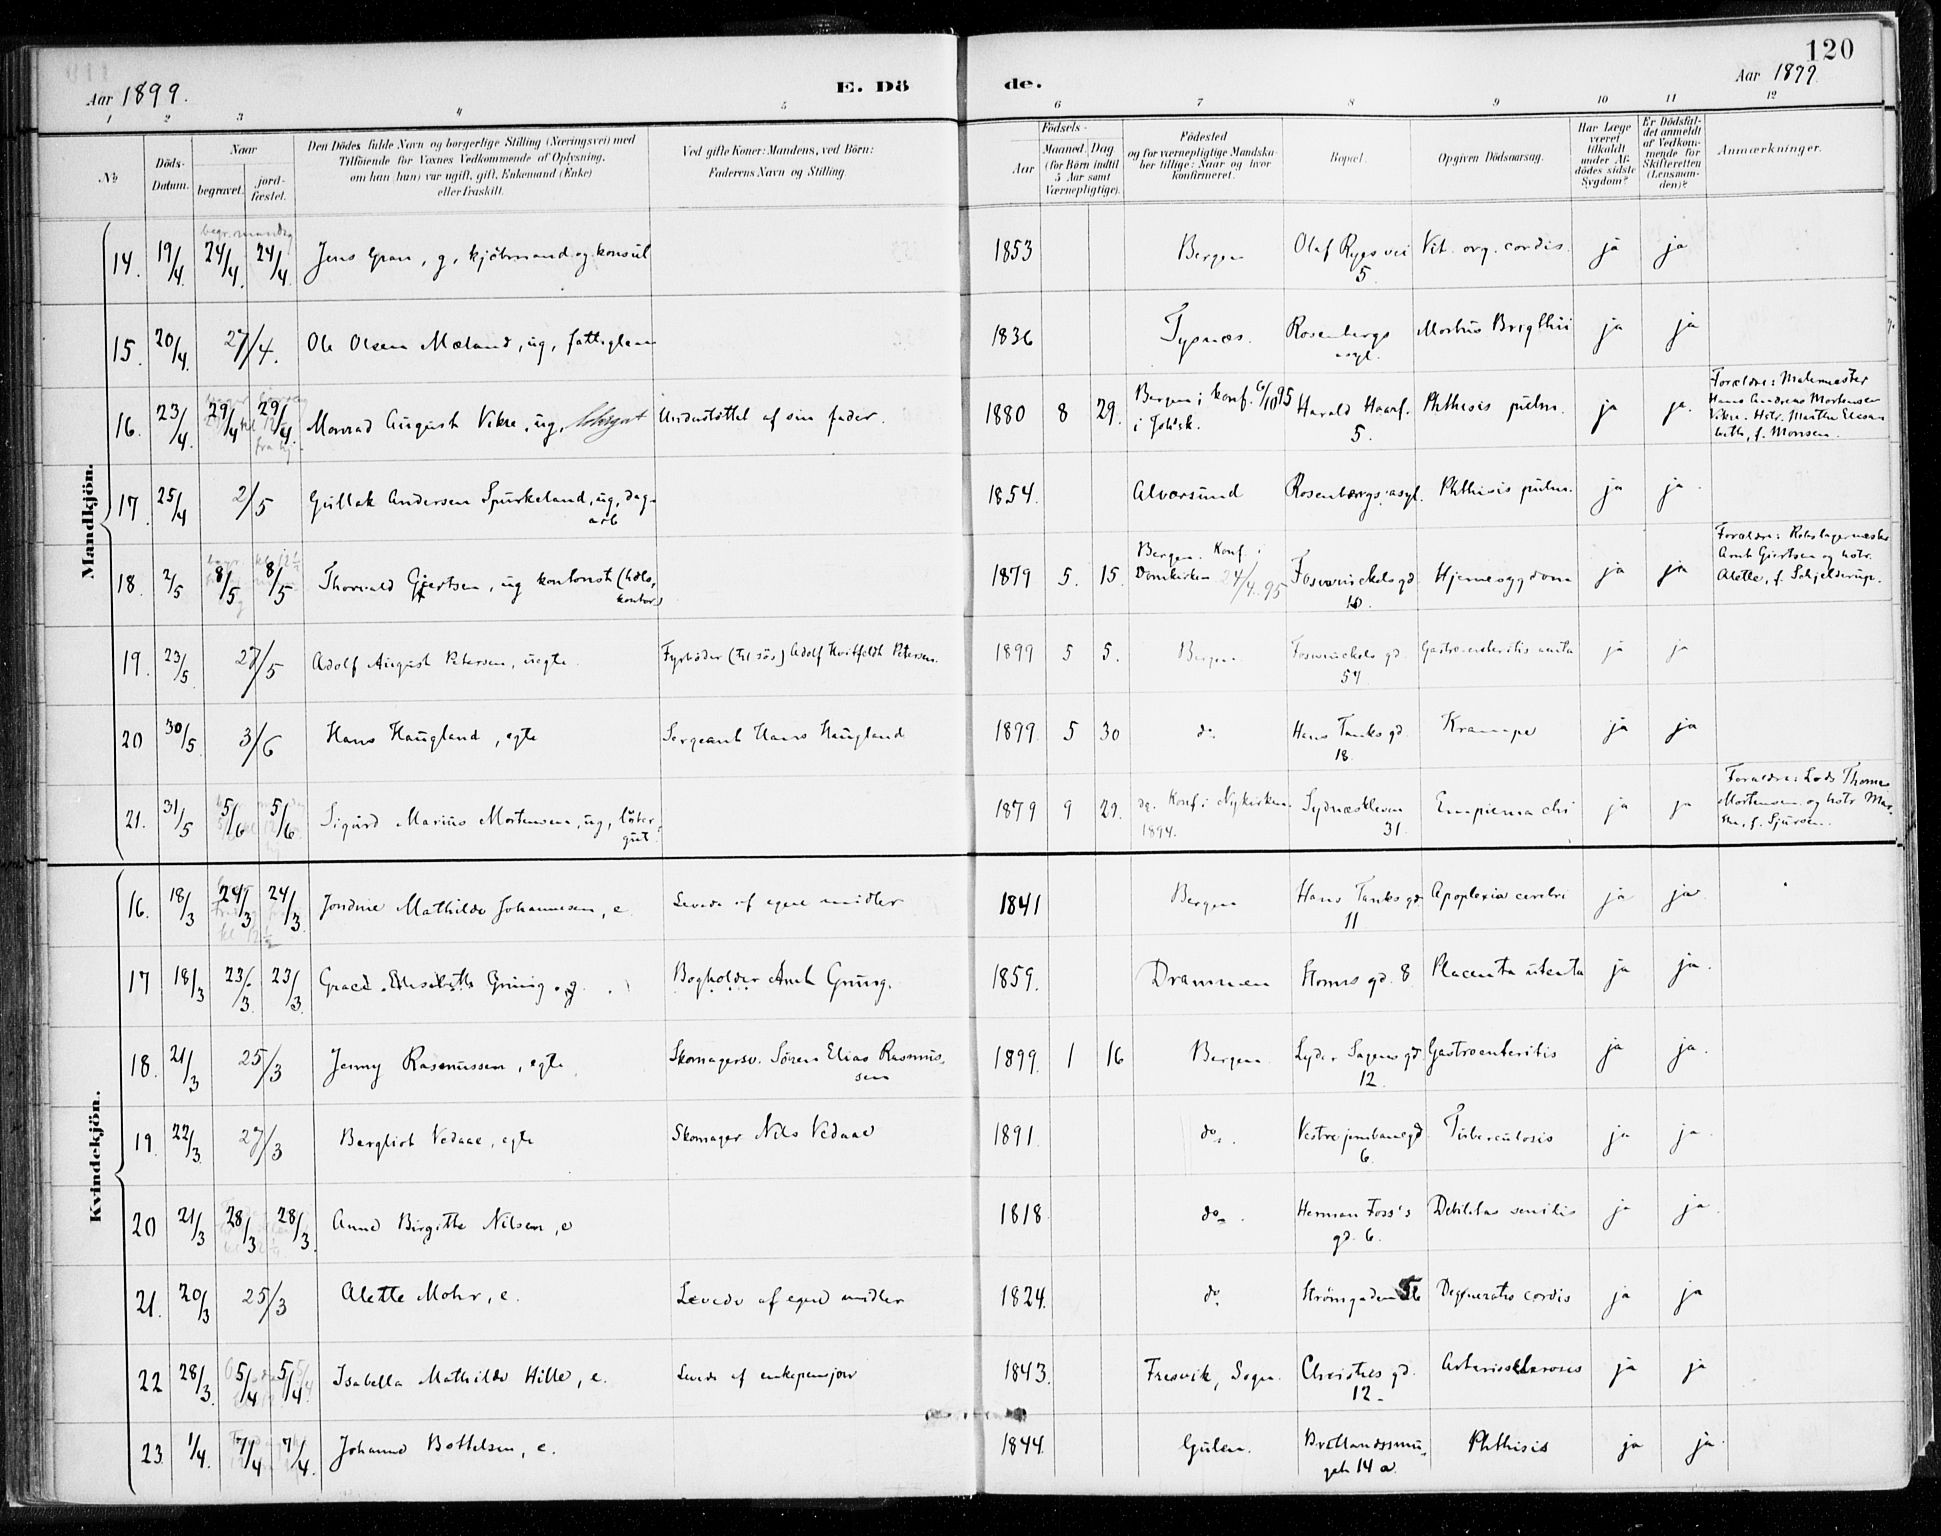 120
Aar 1899.
E. Dö
de.
Aar 1899
1 2 3 4 5
6 7 8 9 10 11 12
№
Döds-Datum.
Naar
begravet.
jord-fæstet.
Den Dödes fulde Navn og borgerlige Stilling (Næringsvei) med
Tilföiende for Voxnes Vedkommende af Oplysning,
om han (hun) var ugift, gift, Enkemand (Enke)
eller fraskilt.
Ved gifte Koner: Mandens, ved Börn:
Faderens Navn og Stilling
Födsels-
Aar
Maaned. Dag
(for Börn indtil
5 Aar samt
Værnepligtige).
Födested
og for værnepligtige Mandska-
ber tillige: Naar og hvor
konfirmeret.
Bopæl.
Opgiven Dödsaarsag.
Har Læge
været
tilkaldt
under Af-
dödes sidste
Sygdom?
Er Dödsfal-
det anmeldt
af Vedkom-
mende for
Skifteretten
(Lensman-
den)?
Anmærkninger.
Mandkjön.
14. 19/4 24/4. 24/4. Jens Gran, g, kjöbmand og konsul 1853 Bergen Olaf Ryes vei 5. Vit. org. cordis. ja ja
15. 20/4. 27/4. Ole Olsen Mæland, ug, fattiglem 1836 Tysnæs. Rosenbergs asyl. Morbus Brigthii ja ja
16. 23/4. 29/4 29/4. Monrad August Vikre, ug, Understöttet af sin fader. 1880 8 29. Bergen; konf. 6/10 95 i Joh'sk. Harald Haarf. 5. Phthisis pulm. ja ja.
Forældre: Malermester
Hans Andreas Mortensen
Vikre. Hstr. Marthe Elesa-
beth, f. Monsen.
17. 25/4 2/5 Gullak Andersen Spurkeland, ug, dag-
arb 1854. Alversund Rosenbergs asyl. Phthisis pulm. ja ja.
18. 2/5 8/5 8/5 Thorvald Gjertsen, ug kontorist (hdls,
kontor) 1879 5. 15. Bergen. Konf. i
Domkirken 24/4. 95 Fosswinckels gd 10. Hjernesygdom ja ja
Forældre: Rebslagermester
Arnt Giertsen og hstr.
Alette, f. Schjelderup.
19. 23/5 27/5 Adolf August Petersen, uegte. Fyrböder (til sös) Adolf Hvitfeldt Petersen. 1899 5 5. Bergen Foswinckels gd. 57. Gastroenteritis acuta ja ja
20 30/5 3/6 Hans Haugland, egte Sergeant Hans Haugland 1899 5 30 do. Hans Tanks gd. 18. Krampe ja ja
21. 31/5 5/6 5/6 Sigurd Marius Mortensen, ug,
gut. 1879 9 29. do. Konf i Nykirken
1894. Sydnæskleven 31. Empiema ja ja
Forældre: Lods Thomas
Mortensen og hstr Mar-
the, f. Sjursen.
Kvindekjön.
16. 18/3 24/3 24/3 Jondine Mathilde Johannesen, e. Levede af egne midler 1841 Bergen Hans Tanks gd 11 Apoplexia cerebri ja ja
17 18/3 23/3. 23/3. Elisabeth Grung, g. Bogholder Arnt Grung. 1859. Drammen Stoms gd. 8 Placenta ja ja.
18. 21/3 25/3 Jenny Rasmussen, egte Skomagersv. Sören Elias Rasmus-
sen 1899. 1 16 Bergen. Lyder Sagens gd. 12. Gastroenteritis ja ja.
19. 22/3. 27/3 Bergliot Vedaae, egte Skomager Nils Vedaae 1891. do. Vestre jernbanegd. 6. Tuberculosis ja ja.
20 21/3 28/3 28/3. Anne Birgitte Nilsen, e 1818 do. Herman Foss's
gd. 6. Debilitas senilis ja ja.
21. 20/3 25/3 Alette Mohr, e. Levede af egne midler 1824. do. Strömgaden Degeneratio cordis ja ja
22 28/3. 5/4 5/4. Isabella Mathilde Hille, e. Levede af enkepension 1843. Fresvik, Sogn. Christies gd. 12. Arteriosclerosis ja ja
23. 1/4. 7/4 7/4. Johanne Bottelsen, e. 1844. Gulen. 14 a. Phthisis ja ja.